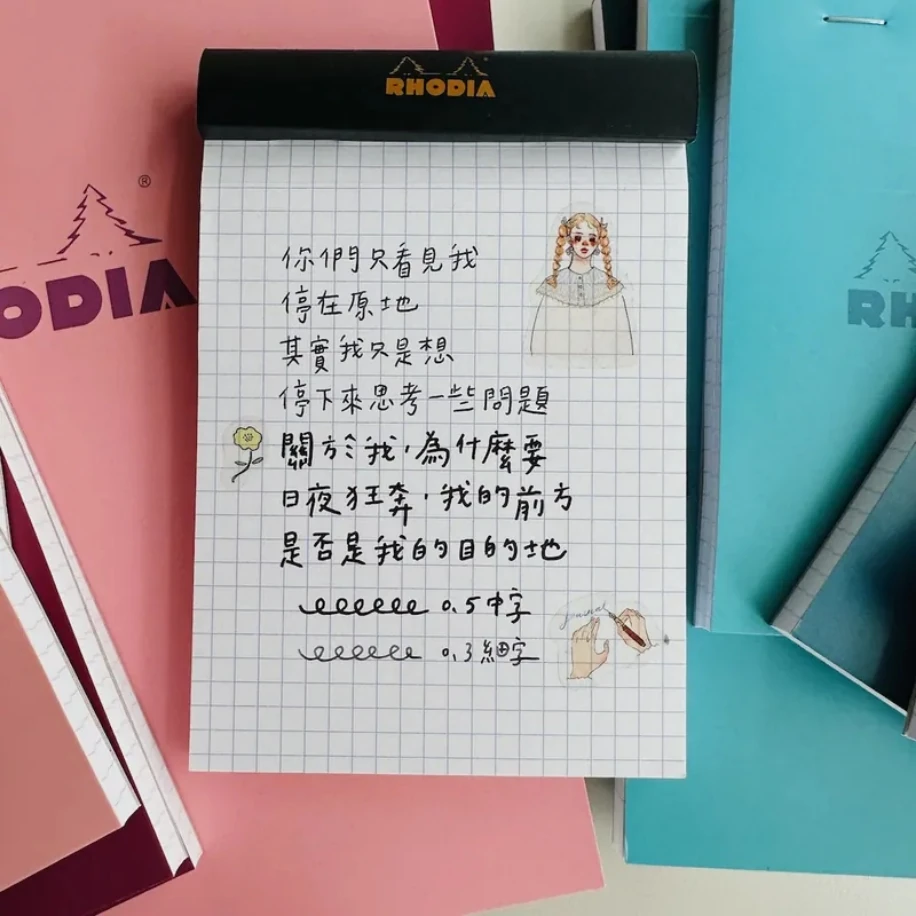 RHODIA
®
ODIA
RH
你們只看見我
停在原地
其實我只是想
停下來思考一些問題
關於我,為什麼要
日夜狂奔,我的前方
是否是我的目的地
0.5中字
0.3細字